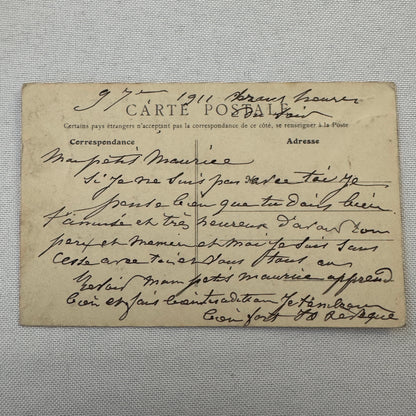 9 7bre 1911 heures
du soir
CARTE POSTALE
Certains pays étrangers n'acceptant pas la correspondance de ce côté, se renseigner à la Poste
Correspondance
Adresse
Mon petit Maurice
Si je ne suis pas avec toi je
pense bien que tu dois bien
t'amuser et très heureux d'avoir ton
et et moi je suis sans
cesse avec toi et vous tous en
mon petit Maurice apprend
bien et fais bien ta Je t'embrasse
bien fort